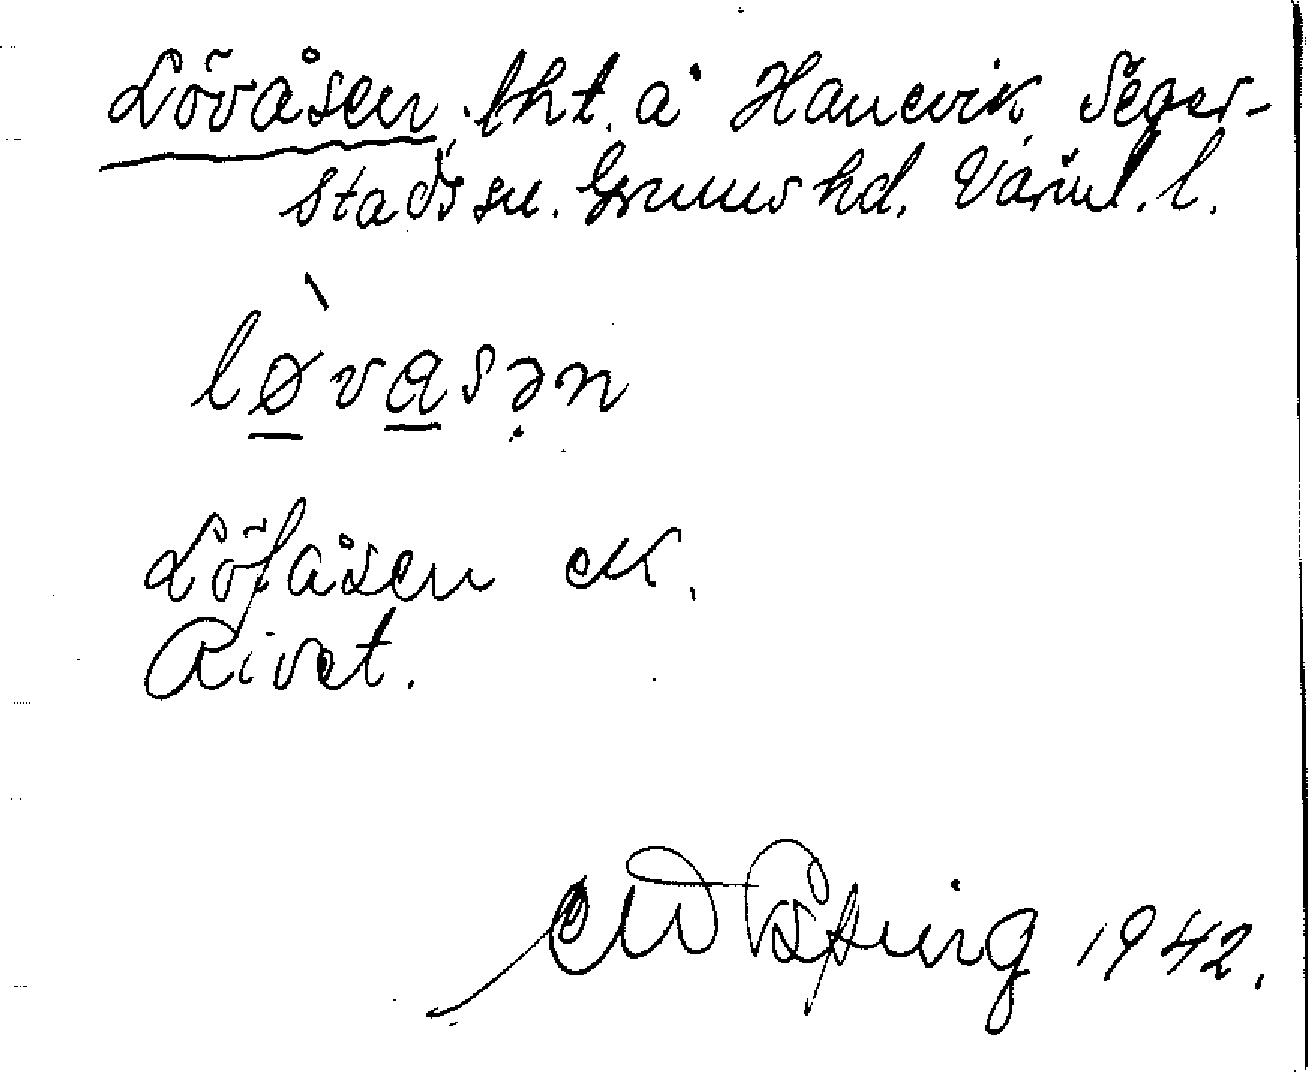 Lövåsen, lht. å Hanevik Seger-
stads sn. Grums hd. Värml. l.
lø̀vasən
Löfåsen EK.
Rivet.
1942.